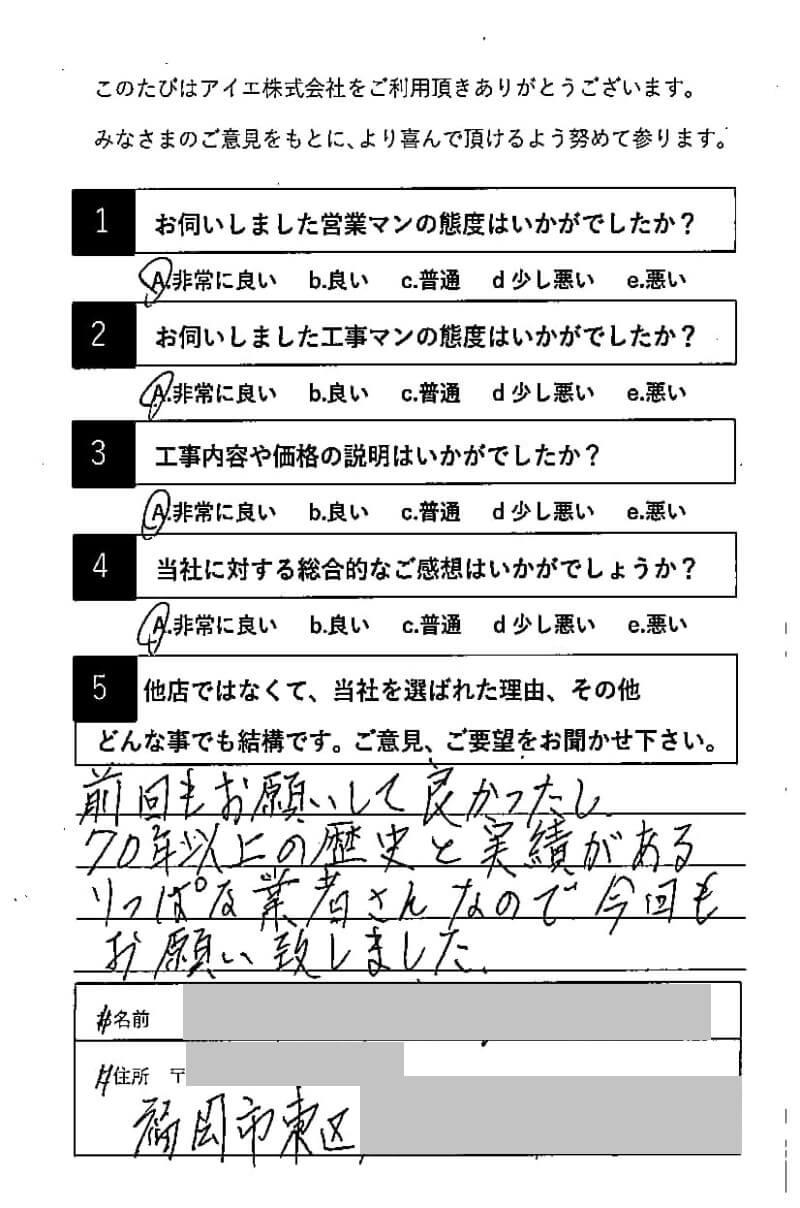 このたびはアイエ株式会社をご利用頂きありがとうございます。
みなさまのご意見をもとに、より喜んで頂けるよう努めて参ります。
1 お伺いしました営業マンの態度はいかがでしたか？
A.非常に良い b.良い c.普通 d 少し悪い e.悪い
2 お伺いしました工事マンの態度はいかがでしたか？
A.非常に良い b.良い c.普通 d 少し悪い e.悪い
3 工事内容や価格の説明はいかがでしたか？
A.非常に良い b.良い c.普通 d 少し悪い e.悪い
4 当社に対する総合的なご感想はいかがでしょうか？
A.非常に良い b.良い c.普通 d 少し悪い e.悪い
5 他店ではなくて、当社を選ばれた理由、その他
どんな事でも結構です。ご意見、ご要望をお聞かせ下さい。
前回もお願いして良かったし、
70年以上の歴史と実績がある
りっぱな業者さんなので今回も
お願い致しました。
お名前
ご住所 〒
福岡市東区